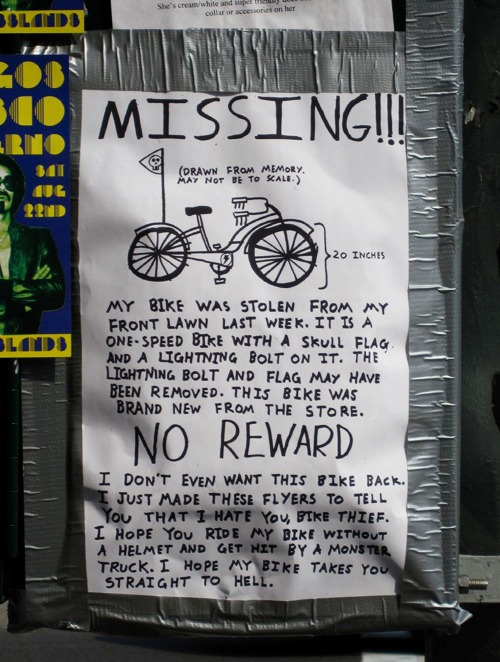 She's cream/white and super friendly
collar or accessories on her
SSLANDS
GOS
SCO
ERNO
SAT
AUG
22ND
SLANDS
MISSING!!!
(DRAWN FROM MEMORY.
MAY NOT BE TO SCALE.)
20 INCHES
MY BIKE WAS STOLEN FROM MY
FRONT LAWN LAST WEEK. IT IS A
ONE-SPEED BIKE WITH A SKULL FLAG
AND A LIGHTNING BOLT ON IT. THE
LIGHTNING BOLT AND FLAG MAY HAVE
BEEN REMOVED. THIS BIKE WAS
BRAND NEW FROM THE STORE.
NO REWARD
I DON'T EVEN WANT THIS BIKE BACK.
I JUST MADE THESE FLYERS TO TELL
YOU THAT I HATE YOU, BIKE THIEF.
I HOPE YOU RIDE MY BIKE WITHOUT
A HELMET AND GET HIT BY A MONSTER
TRUCK. I HOPE MY BIKE TAKES YOU
STRAIGHT TO HELL.